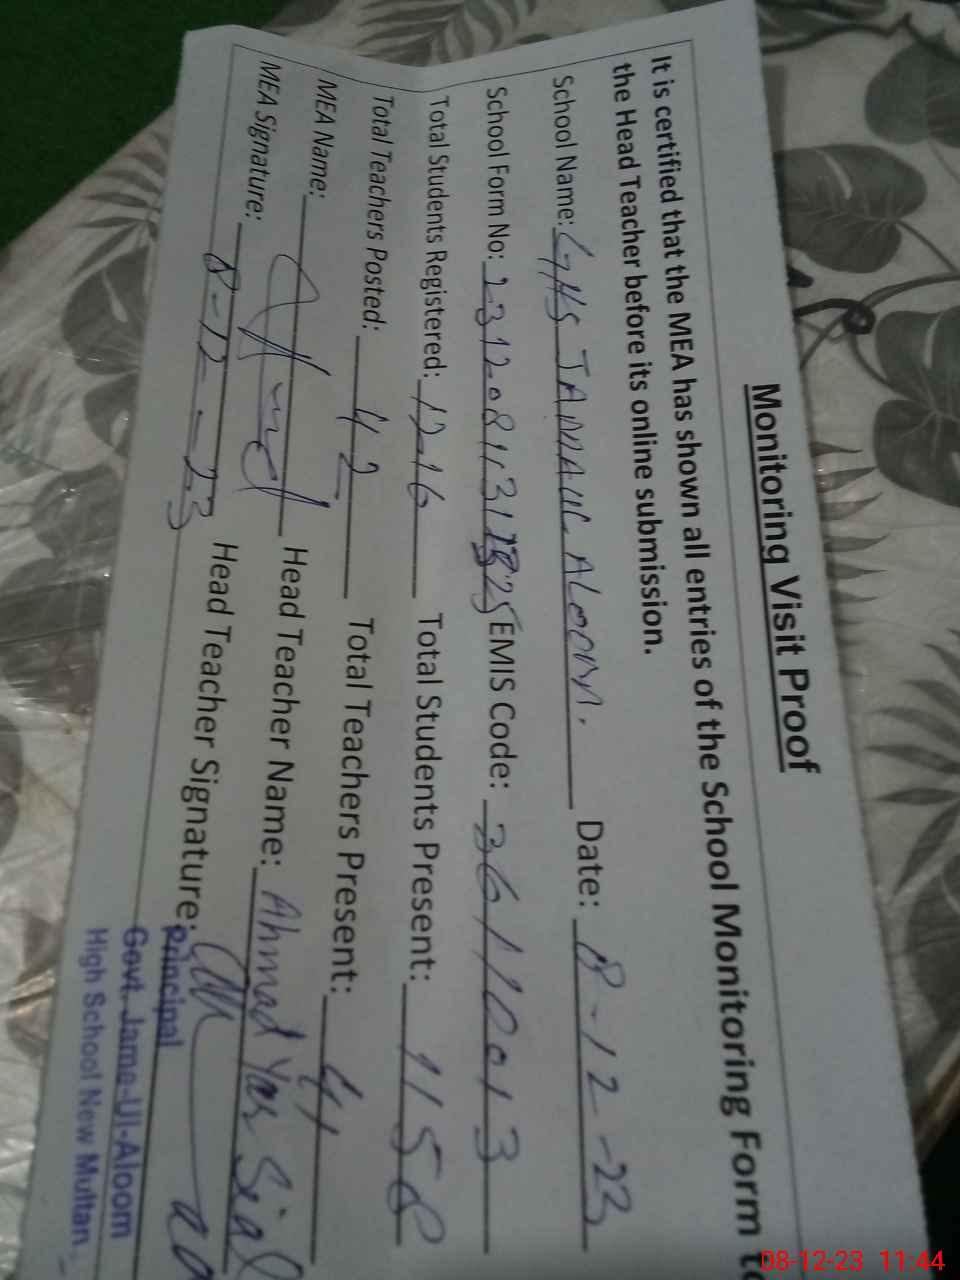 Monitoring Visit Proof
It is certified that the MEA has shown all entries of the School Monitoring Form to
the Head Teacher before its online submission.
School Name: GHS JAMAUL ALOOM. Date: 8-12-23
School Form No: EMIS Code: 36110013
Total Students Registered: 1216 Total Students Present: 1158
Total Teachers Posted: 42 Total Teachers Present: 41
MEA Name: Head Teacher Name: Ahmad Yar Sial
MEA Signature: 8-12-23 Head Teacher Signature:
Principal
Govt. Jame-Ul-Aloom
High School New Multan.
08-12-23 11:44